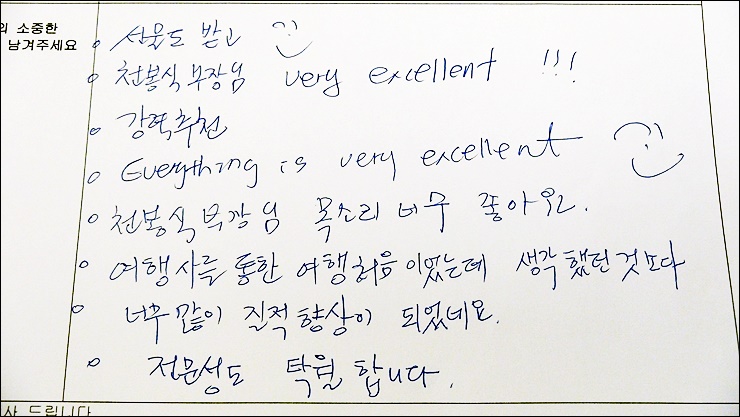 의 소중한
남겨주세요
선물도 받고
천봉식 부장님 very excellent !!!
강력추천
Everything is very excellent
천봉식 부장님 목소리 너무 좋아요.
여행사를 통한 여행처음이었는데 생각했던 것보다
너무 많이 질적 향상이 되었네요.
전문성도 탁월합니다.
사 드립니다